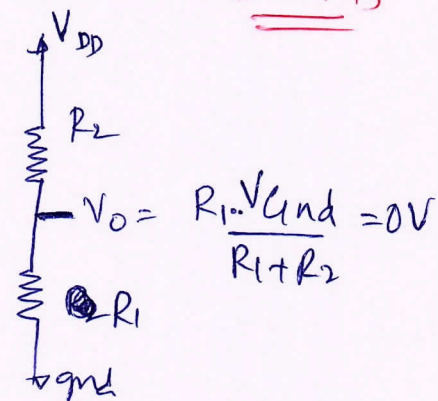 V_DD
R_2
V_O = R_1..VGnd / R_1+R_2 = 0V
R_1
gnd